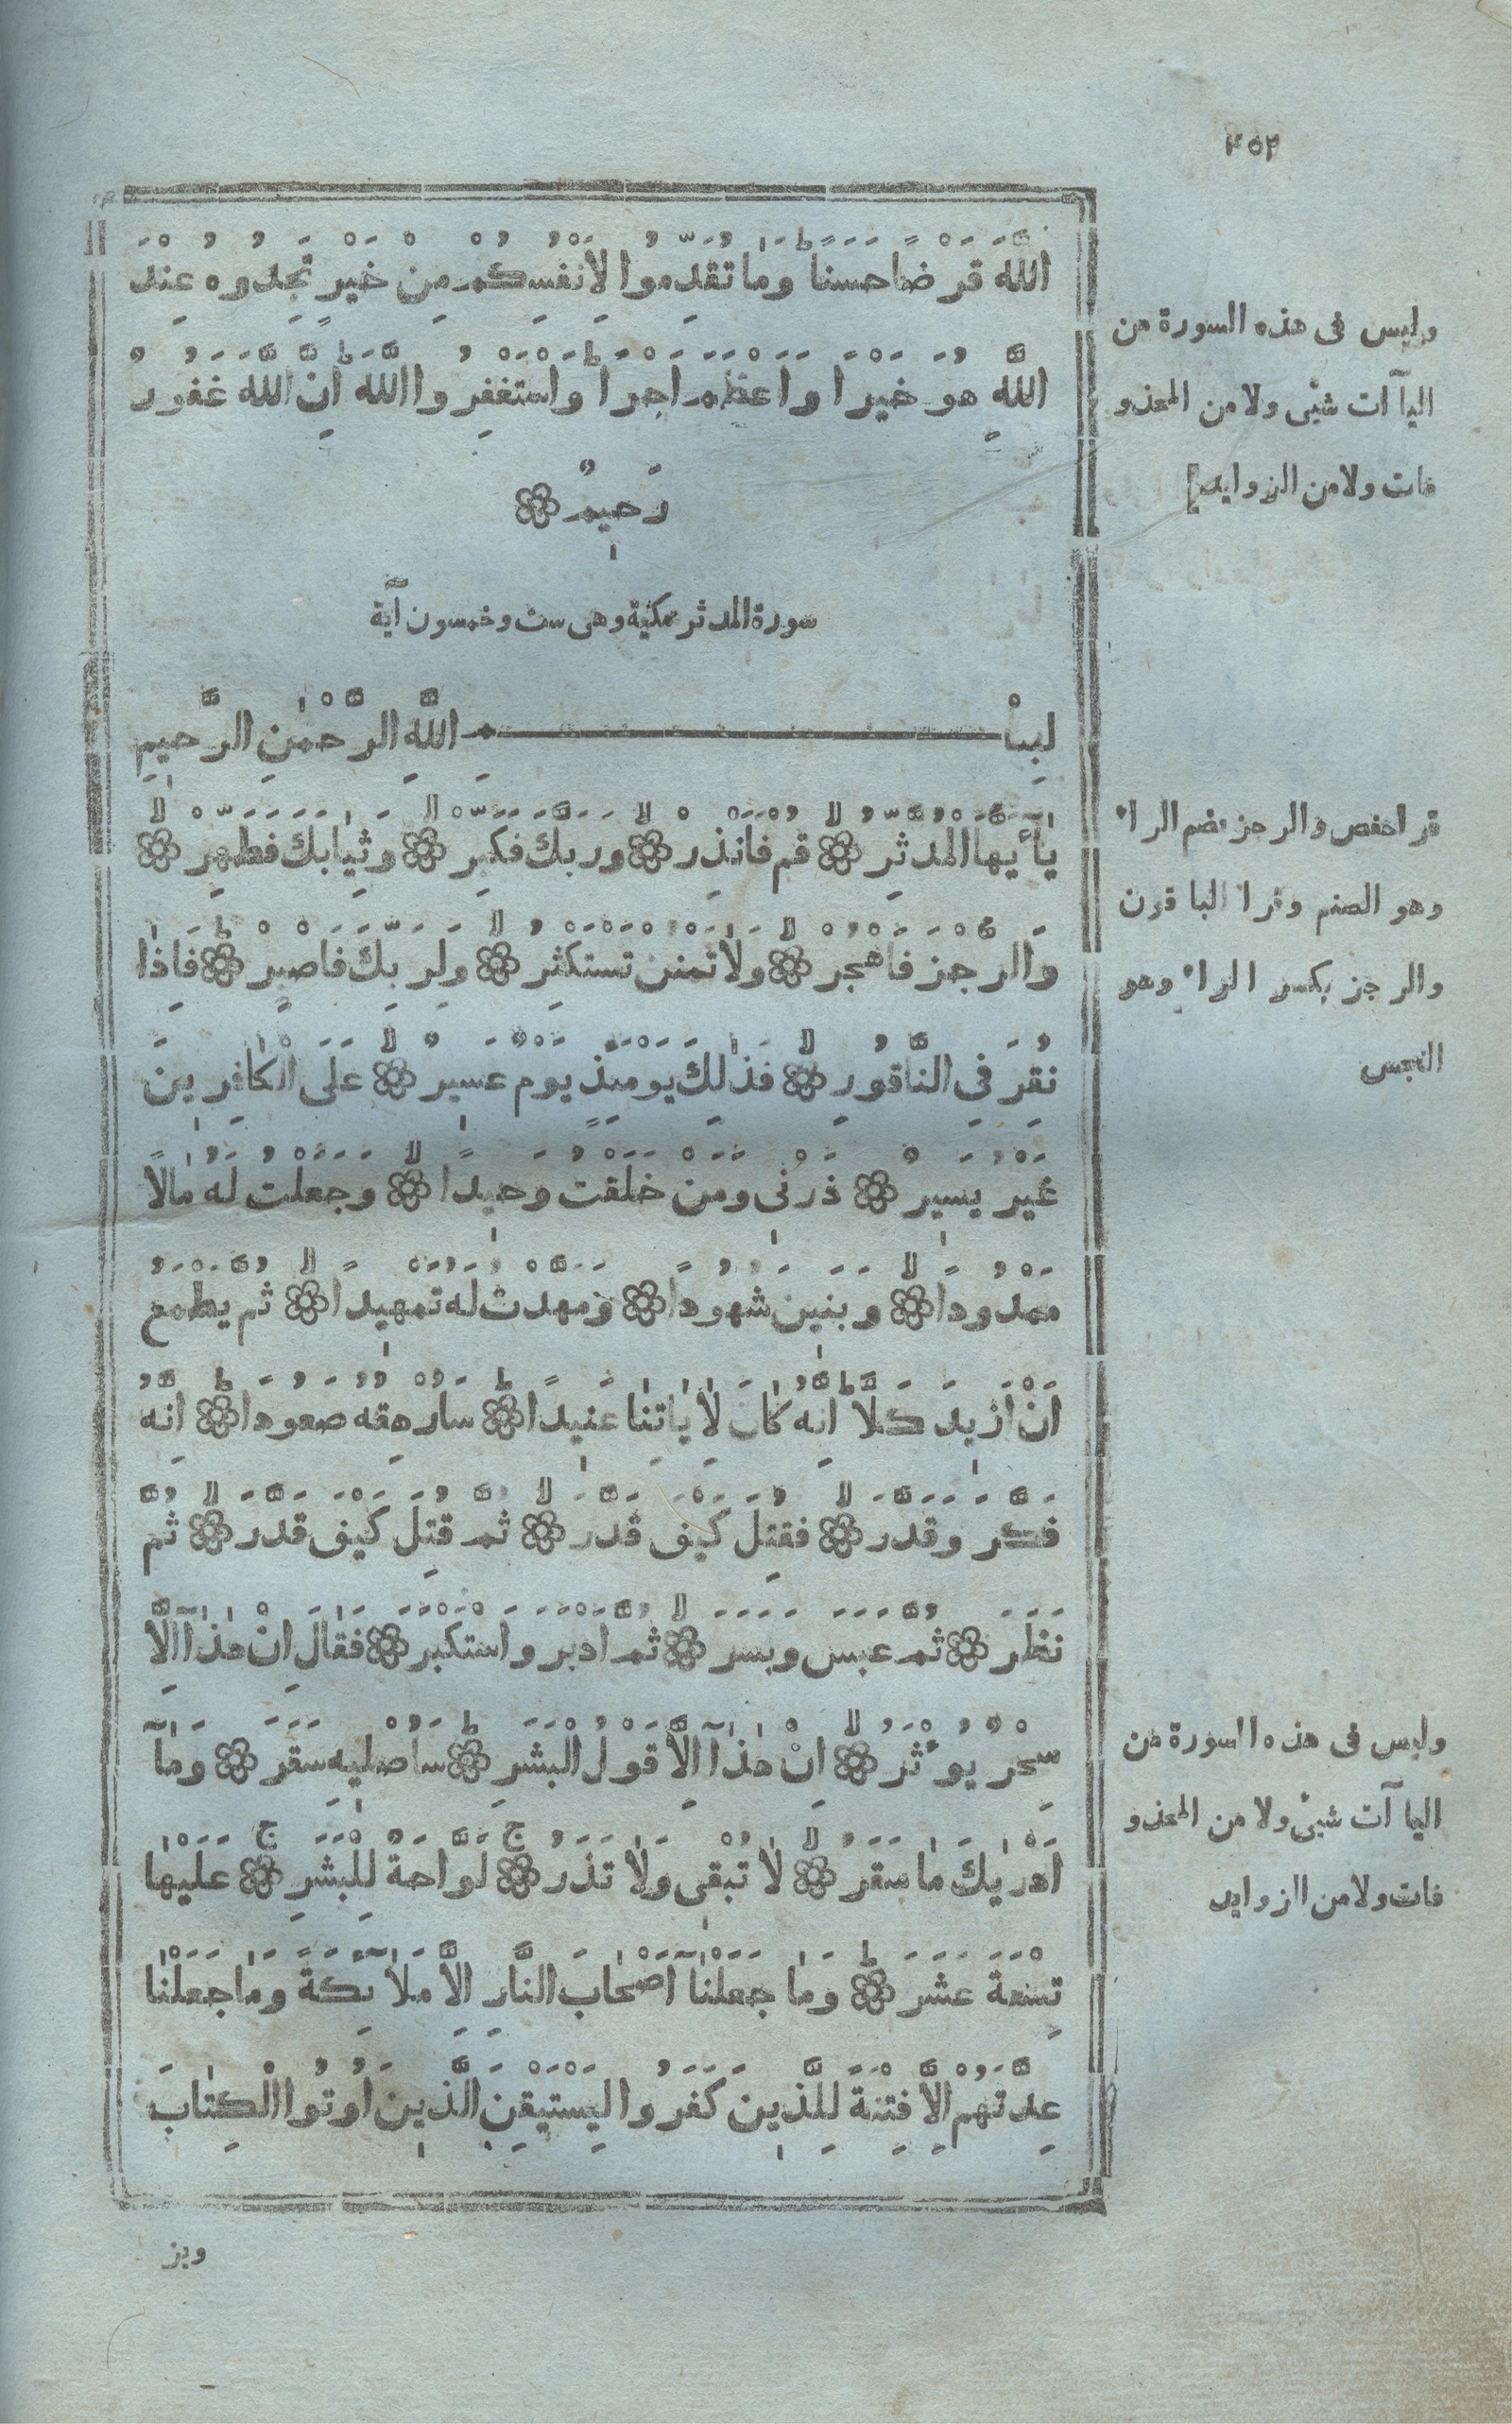 ٤٥٢
اللَّهَ قَرْضًا حَسَنًا وَمَا تُقَدِّمُوا لِأَنْفُسِكُمْ مِنْ خَيْرٍ تَجِدُوهُ عِنْدَ
اللَّهِ هُوَ خَيْرًا وَأَعْظَمَ أَجْرًا وَاسْتَغْفِرُوا اللَّهَ إِنَّ اللَّهَ غَفُورٌ
رَحِيمٌ
سورة المدثر مكية وهى ست وخمسون آية
بِسْمِ اللَّهِ الرَّحْمٰنِ الرَّحِيمِ
يَآ أَيُّهَا الْمُدَّثِّرُ قُمْ فَأَنْذِرْ وَرَبَّكَ فَكَبِّرْ وَثِيَابَكَ فَطَهِّرْ
وَالرُّجْزَ فَاهْجُرْ وَلَا تَمْنُنْ تَسْتَكْثِرُ وَلِرَبِّكَ فَاصْبِرْ فَإِذَا
نُقِرَ فِى النَّاقُورِ فَذٰلِكَ يَوْمَئِذٍ يَوْمٌ عَسِيرٌ عَلَى الْكَافِرِينَ
غَيْرُ يَسِيرٍ ذَرْنِى وَمَنْ خَلَقْتُ وَحِيدًا وَجَعَلْتُ لَهُ مَالًا
مَمْدُودًا وَبَنِينَ شُهُودًا وَمَهَّدْتُ لَهُ تَمْهِيدًا ثُمَّ يَطْمَعُ
أَنْ أَزِيدَ كَلَّا إِنَّهُ كَانَ لِآيَاتِنَا عَنِيدًا سَأُرْهِقُهُ صَعُودًا إِنَّهُ
فَكَّرَ وَقَدَّرَ فَقُتِلَ كَيْفَ قَدَّرَ ثُمَّ قُتِلَ كَيْفَ قَدَّرَ ثُمَّ
نَظَرَ ثُمَّ عَبَسَ وَبَسَرَ ثُمَّ أَدْبَرَ وَاسْتَكْبَرَ فَقَالَ إِنْ هٰذَآ إِلَّا
سِحْرٌ يُؤْثَرُ إِنْ هٰذَآ إِلَّا قَوْلُ الْبَشَرِ سَأُصْلِيهِ سَقَرَ وَمَآ
أَدْرٰيكَ مَا سَقَرُ لَا تُبْقِى وَلَا تَذَرُ لَوَّاحَةٌ لِلْبَشَرِ عَلَيْهَا
تِسْعَةَ عَشَرَ وَمَا جَعَلْنَآ أَصْحَابَ النَّارِ إِلَّا مَلَآئِكَةً وَمَا جَعَلْنَا
عِدَّتَهُمْ إِلَّا فِتْنَةً لِلَّذِينَ كَفَرُوا لِيَسْتَيْقِنَ الَّذِينَ أُوتُوا الْكِتَابَ
ويز
وليس فى هذه السورة من
اليا آت شئى ولا من المحذو
فات ولا من الزوايد
قرا حفص والرجز بضم الراء
وهو الصنم وقرا الباقون
والرجز بكسر الراء وهو
النجس
وليس فى هذه السورة من
اليا آت شئى ولا من المحذو
فات ولا من الزوايد